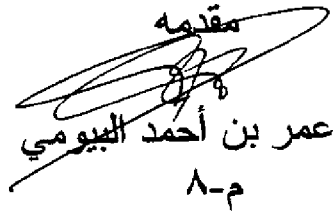 مقدمه
عمر بن أحمد البيومي
م-٨